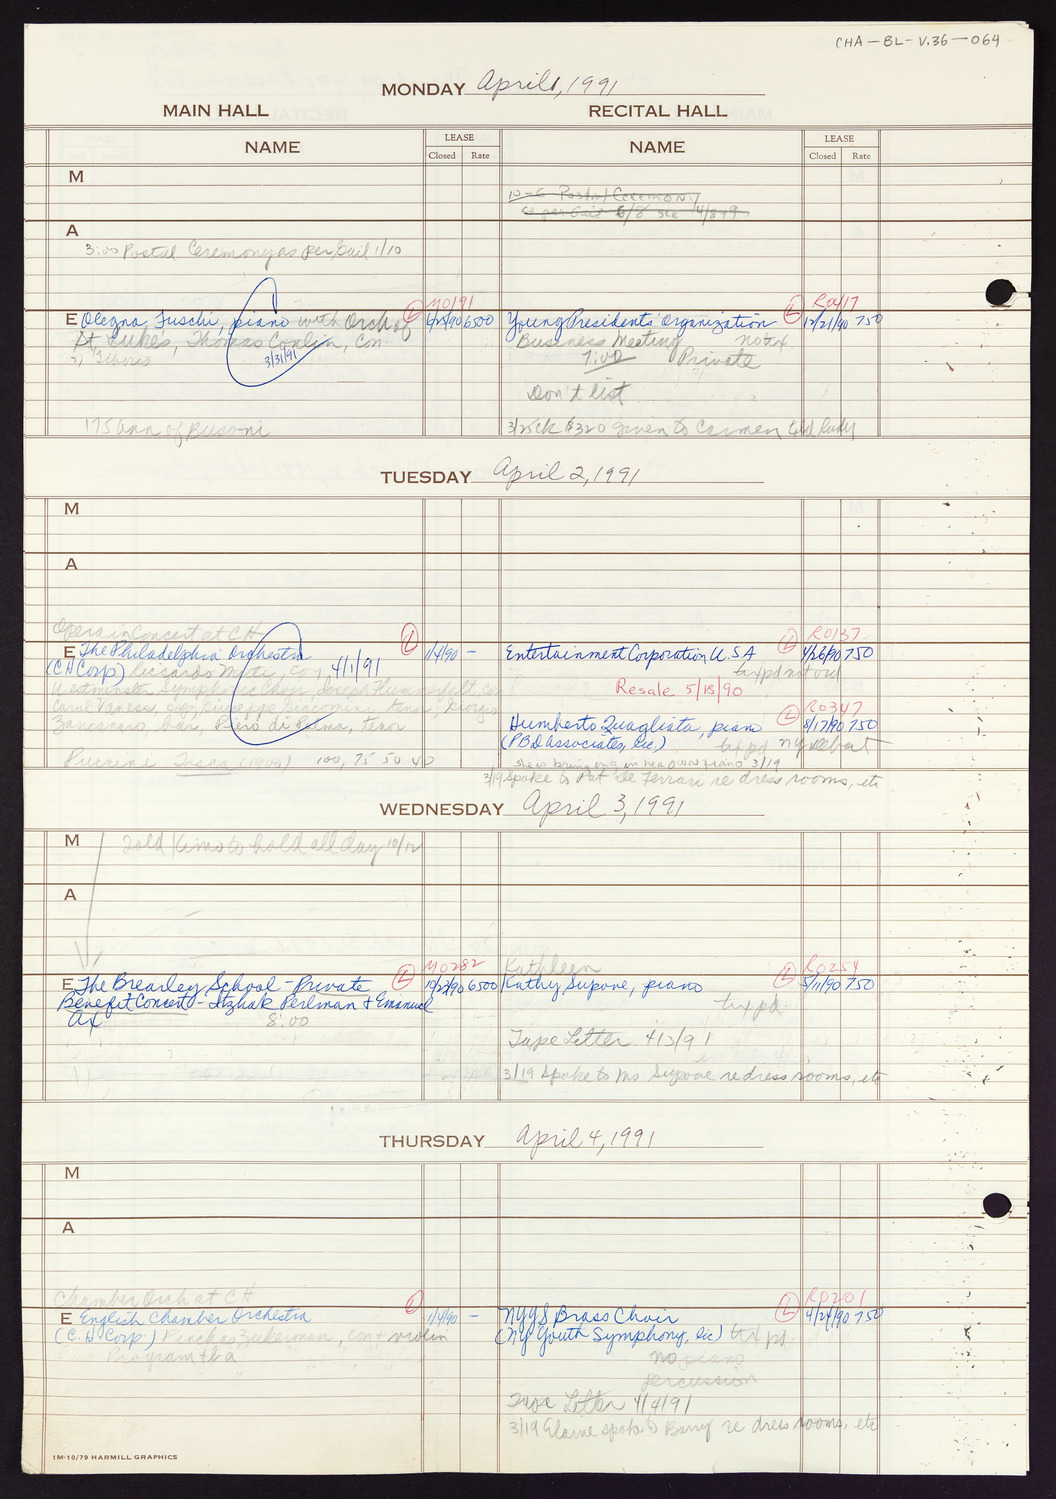 CHA-BL-V.36-064
MONDAY April 1, 1991
MAIN HALL
RECITAL HALL
NAME
LEASE
Closed
Rate
NAME
LEASE
Closed
Rate
M
10-6 Postal Ceremony
as per Gail 6/8 see 4/8+9
A
3:00 Postal Ceremony as per Gail 1/10
M0191
E Olegna Fuschi, piano with Orch of L 6500
St Lukes, Thomas Conlin, Con
3/31/91
175 ann of Busoni
R0417
Young Presidents' Organization L 12/21/90 750
Business Meeting
7:00 Private
Don't list
3/25 ck $320 given to Carmen told Rudy
TUESDAY April 2, 1991
M
A
Opera in Concert at CH
E The Philadelphia Orchestra L 1/4/90 -
(CH Corp) Riccardo Muti, Con 4/1/91
Westminster Symphonic Choir, Joseph Flummerfelt, con
Carol Vaness, sop, Giuseppe Giacomini, tenor, Giorgio
Zancanaro bar, Piero di Palma, tenor
Puccini Tosca (1900) 100, 75 50 40
R0137
Entertainment Corporation U.S.A L 4/26/90 750
txpd not out
Resale 5/18/90
R0347
Humberto Quagliata, piano L 8/17/90 750
(PBD Associates, Inc.) txpd ny debut
she is bringing in her own piano 3/19
3/19 Spoke to Pat De Ferrari re dress rooms, etc
WEDNESDAY April 3, 1991
M Told Kimo to hold all day 10/12
A
M0282
E The Brearley School - Private L 10/22/90 6500
Benefit Concert - Itzhak Perlman + Emanuel
Ax 8:00
Kathleen R0254
Kathy Supove, piano L 5/11/90 750
txpd
Tape Letter 4/3/91
3/19 Spoke to Ms Supove re dress rooms, etc
THURSDAY April 4, 1991
M
A
Chamber Orch at CH
E English Chamber Orchestra L 1/4/90 -
(C.H Corp) Pinchas Zukerman, con + violin
Program tba
R0201
NYYS Brass Choir L 4/24/90 750
(NY Youth Symphony, Inc) txpd
no piano
percussion
Tape Letter 4/4/91
3/19 Elaine spoke to Barry re dress rooms, etc
1M-10/79 HARMILL GRAPHICS